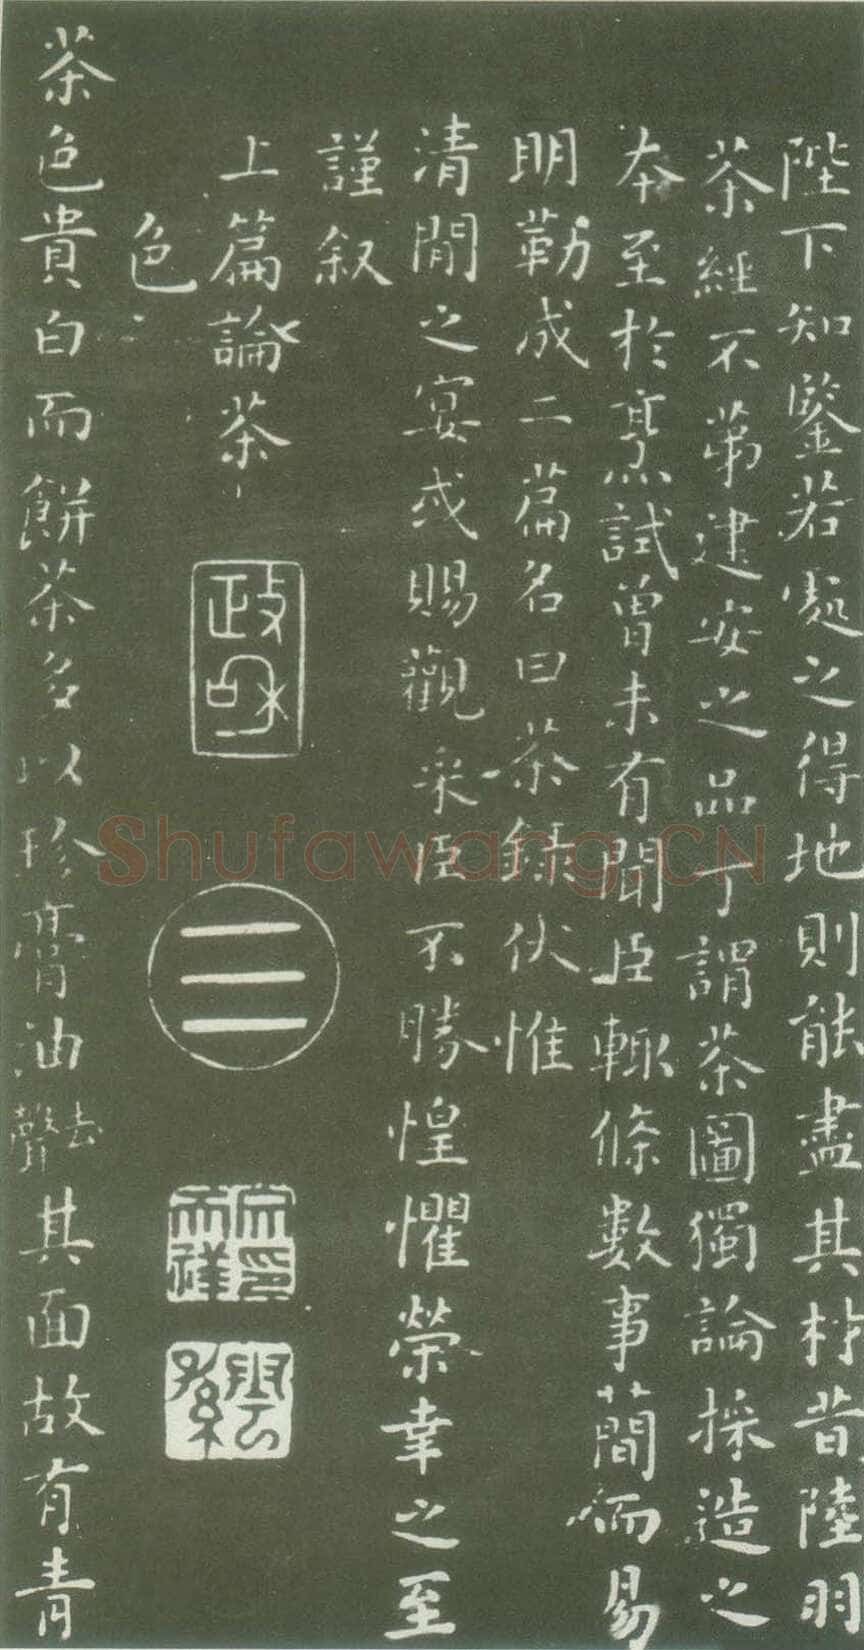 陛下知鑒若處之得地則能盡其材昔陸羽
茶經不第建安之品丁謂茶圖獨論採造之
本至於烹試曾未有聞臣輒條數事簡而易
明勒成二篇名曰茶錄伏惟
清閒之宴或賜觀采臣不勝惶懼榮幸之至
謹叙
上篇論茶
色
茶色貴白而餅茶多以珍膏油去聲其面故有青
政和
三
Shufawang.CN